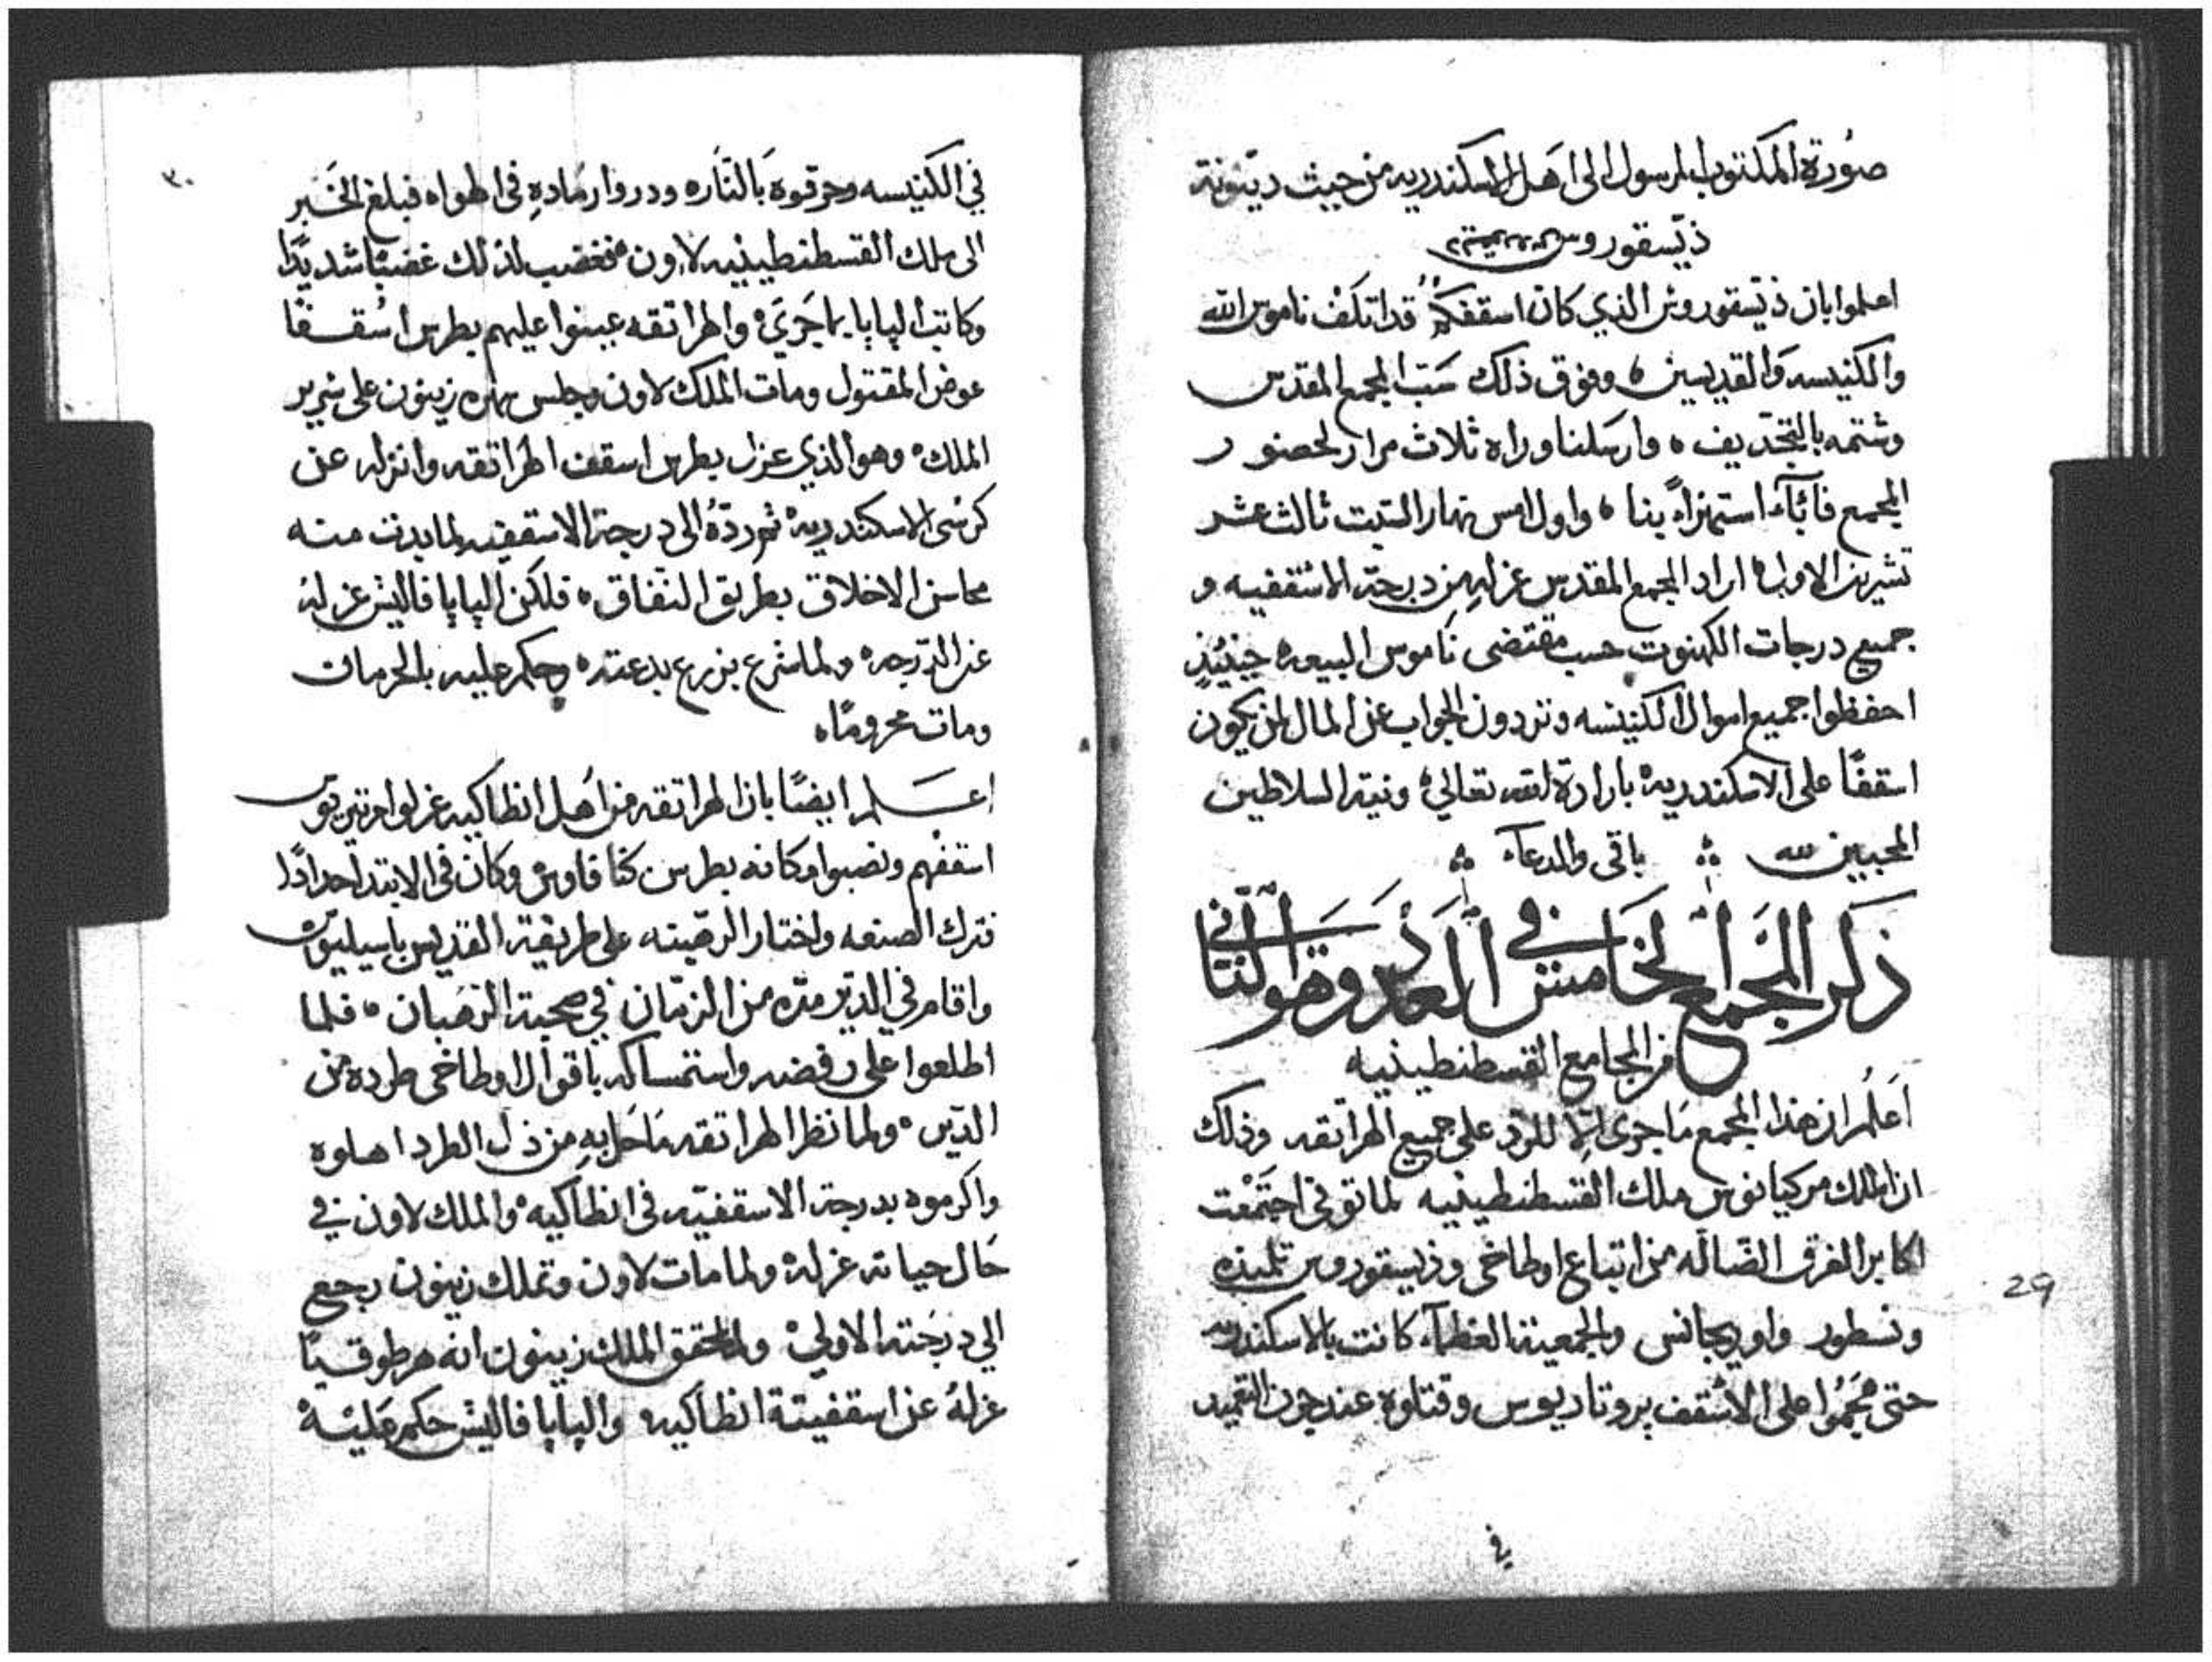 صورة المكتوب المرسول الى اهل الاسكندريه من حيث دينونة
ذيسقوروس
اعلموا بان ذيسقوروس الذي كان اسقفكم قد اتكف ناموس الله
والكنيسه والقديسين ه وفوق ذلك سب المجمع المقدس
وشتمه بالتجديف ه وارسلنا وراه ثلاث مرار لحضور
المجمع فاباء استهزاءً بنا ه واول امس نهار السبت ثالث عشر
تشرين الاول ه اراد المجمع المقدس عزله من درجة الاسقفيه و
جميع درجات الكهنوت حسب مقتضى ناموس البيعه ه حينيذٍ
احفظوا جميع اموال الكنيسه وتردون الجواب عن المال لمن يكون
اسقفًا على الاسكندريه ه بارادة الله تعالي ه ونية السلاطين
المحبين لله باقي والدعاء
ذكر المجمع الخامس في العدد وهو الثاني
من المجامع القسطنطينيه
اعلم ان هذا المجمع ما جرى الا للرد على جميع الهراتقه وذلك
ان الملك مركيانوس ملك القسطنطينيه لما توفى اجتمعت
اكابر الفرق الضاله من اتباع اوطاخى وذيسقوروس تلميذه
ونسطور واوريجانس والجمعية العظماء كانت بالاسكندريه
حتى هجموا على الاسقف بروتاريوس وقتلوه عند جرن التعميد
في
29
٣٠
في الكنيسه وحرقوه بالنار ه ودروا رماده في الهواه فبلغ الخبر
الى ملك القسطنطينيه لاون ه فغضب لذلك غضبًا شديدًا
وكاتب البابا بما جرَى ه والهراتقه عينوا عليهم بطرس اسقفًا
عوض المقتول ومات الملك لاون وجلس صهره زينون على سرير
الملك ه وهو الذي عزل بطرس اسقف الهراتقه وانزله عن
كرسى الاسكندريه ه ثم ردهُ الى درجة الاسقفيه لما بدت منه
محاسن الاخلاق بطريق النفاق ه فلكن البابا فاليش عزله
عن الدرجه ه ولما شرع بزرع بدعته ه وحكم عليه بالحرمان
ومات محرومًا ه
اعلم ايضًا بان الهراتقه من اهل انطاكيه عزلوا مرتيريوس
اسقفهم ونصبوا مكانه بطرس كنافاوس وكان في الابتدا حدادًا
فترك الصنعه واختار الرهبنه على طريقة القديس باسيليوس
واقام في الدير مده من الزمان في صحبة الرهبان ه فلما
اطلعوا على رفضه واستمساكه باقوال اوطاخى طرده من
الدير ه ولما نظر الهراتقه ما حل به من ذل الطرد اهلوه
واكرموه بدرجة الاسقفيه في انطاكيه ه والملك لاون في
حال حياته عزله ه ولما مات لاون وتملك زينون رجع
الي درجته الاولي ه ولما تحقق الملك زينون انه هرطوقيًا
عزلهُ عن اسقفية انطاكيه والبابا فاليش حكم عليه ه